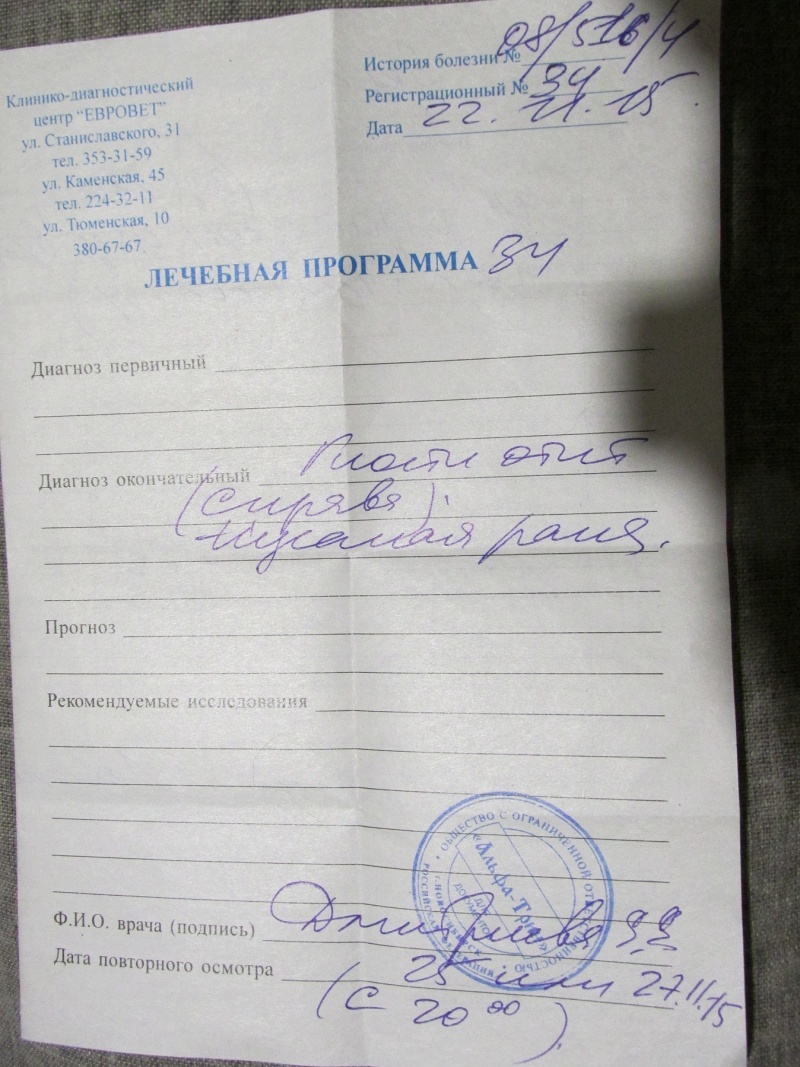 Клинико-диагностический
центр "ЕВРОВЕТ"
ул. Станиславского, 31
тел. 353-31-59
ул. Каменская, 45
тел. 224-32-11
ул. Тюменская, 10
380-67-67
История болезни № 08/516/4
Регистрационный № 34
Дата 22.11.15.
ЛЕЧЕБНАЯ ПРОГРАММА 34
Диагноз первичный
Диагноз окончательный отит
(справа).
Кусаная рана.
Прогноз
Рекомендуемые исследования
ОБЩЕСТВО С ОГРАНИЧЕННОЙ ОТВЕТСТВЕННОСТЬЮ
РОССИЙСКАЯ ФЕДЕРАЦИЯ
«Альфа-Трив»
ДЛЯ ДОКУМЕНТОВ
Ф.И.О. врача (подпись)
Дата повторного осмотра 25 или 27.11.15
(с 20 00).